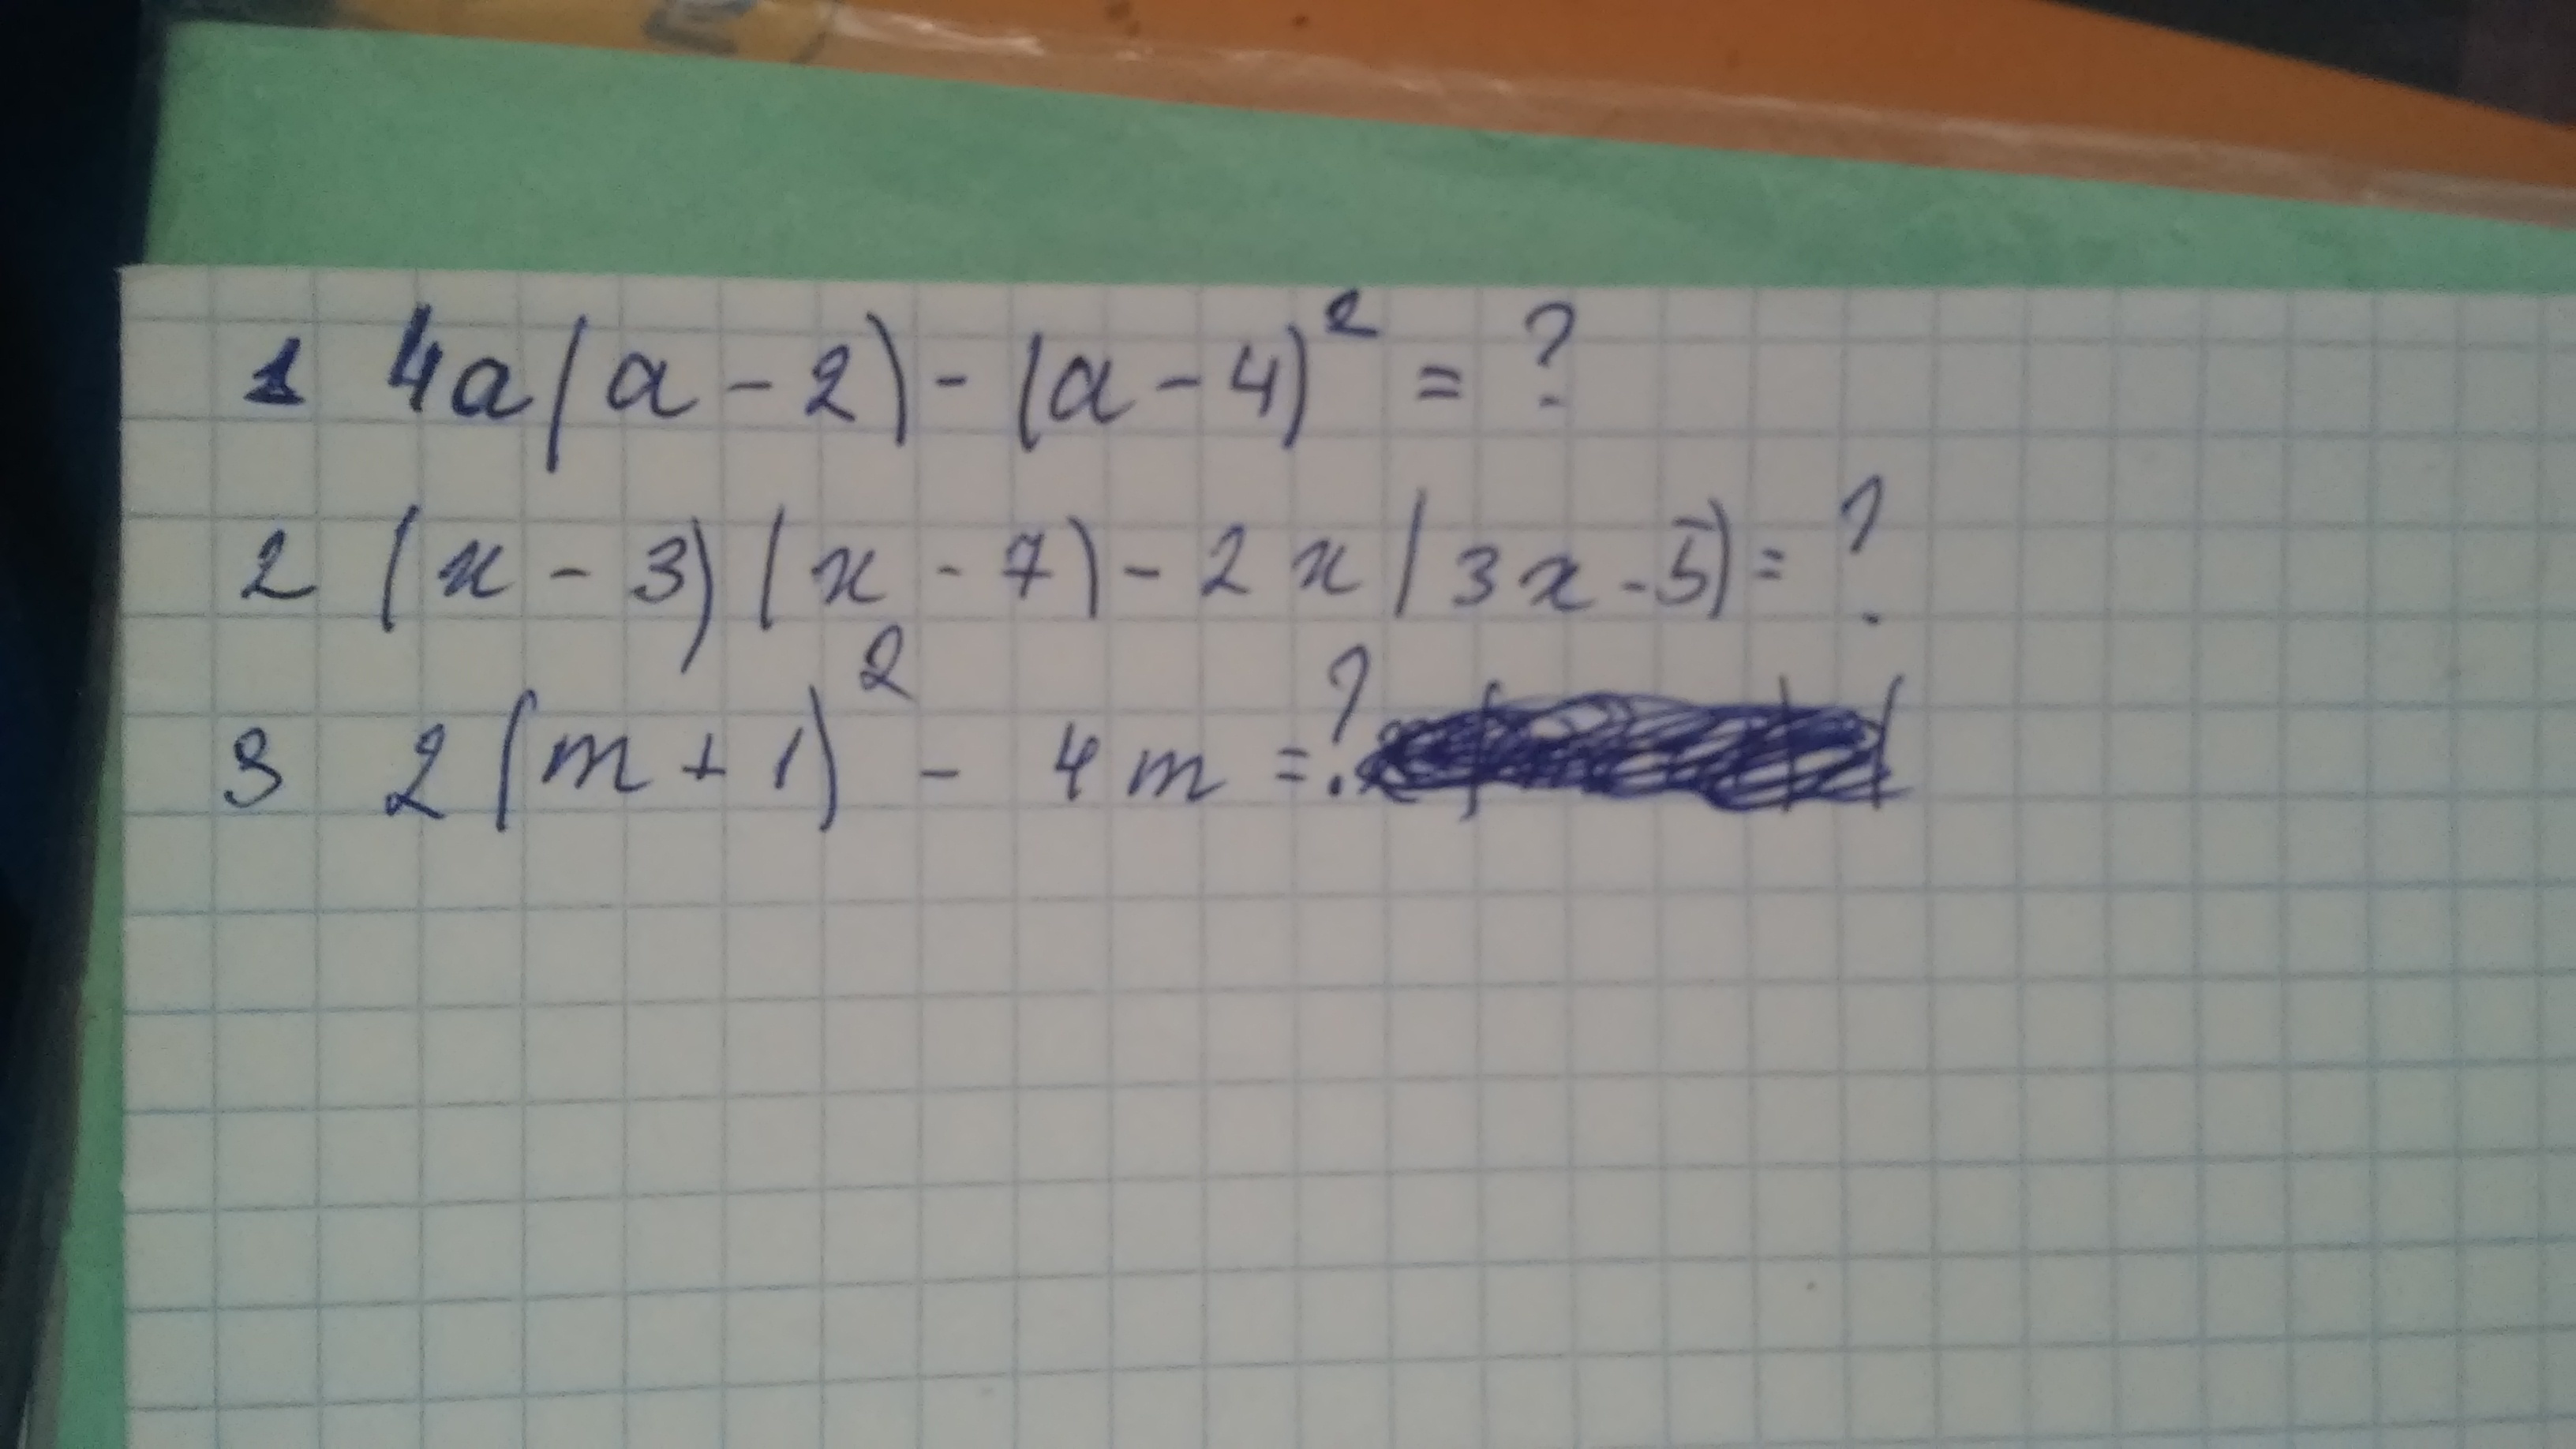 1 4a(a-2)-(a-4)² = ?
2 (x-3)(x-7)-2x(3x-5)= ?
3 2(m+1)² - 4m =?